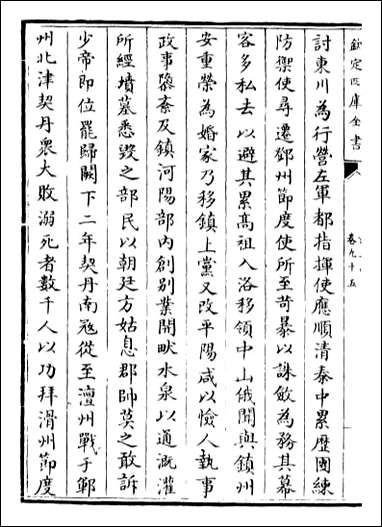 欽定四庫全書
卷九十五
討東川為行營左軍都指揮使應順清泰中累歷團練
防禦使尋遷鄧州節度使所至苛暴以誅斂為務其幕
客多私去以避其累高祖入洛移領中山俄聞與鎮州
安重榮為婚家乃移鎮上黨又改平陽咸以憸人執事
政事隳紊及鎮河陽部內創别業開畎水泉以通溉灌
所經墳墓悉毁之部民以朝廷方姑息郡帥莫之敢訴
少帝即位罷歸闕下二年契丹南寇從至澶州戰于鄆
州北津契丹衆大敗溺死者數千人以功拜滑州節度